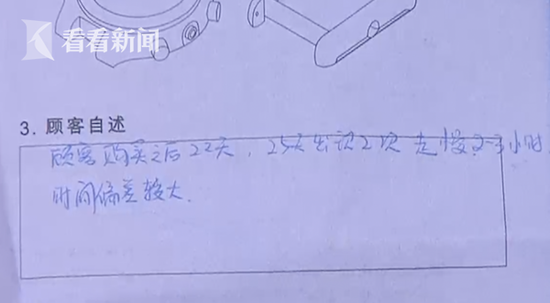 看看新闻
3. 顾客自述
顾客购买之后22天，25天出现2次 走慢2-3小时
时间偏差较大.